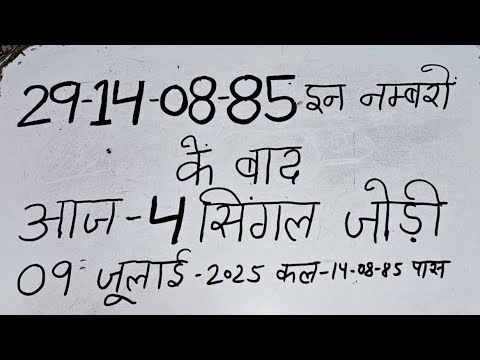 29-14-08-85 इन नम्बरों
के बाद
आज-4 सिंगल जोड़ी
09 जूलाई-2025 कल-14-08-85 पास